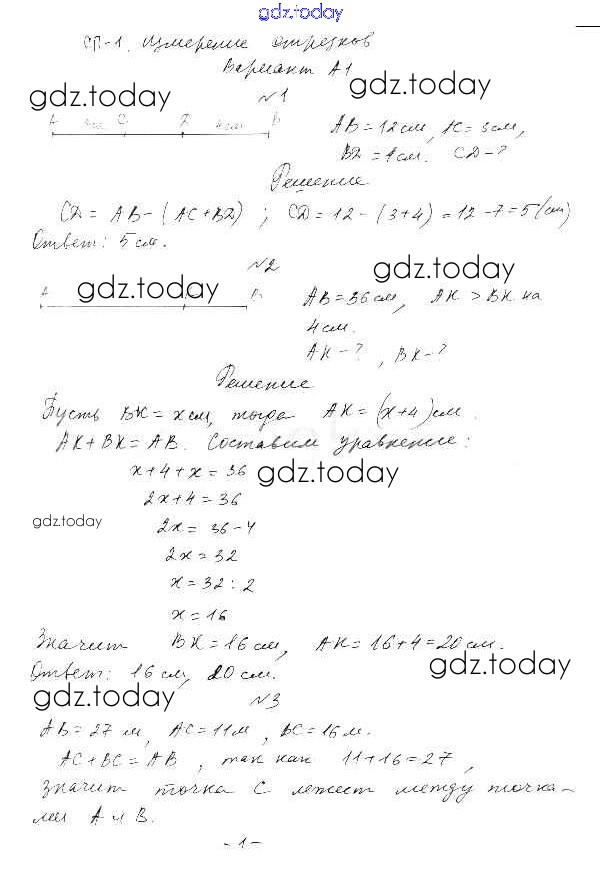 gdz.today
СП-1. Измерение отрезков
Вариант А1
gdz.today gdz.today
№1
A 3см C D 4см B
AB = 12 см, AC = 3 см,
BD = 4 см. CD - ?
Решение
CD = AB - (AC + BD) ; CD = 12 - (3+4) = 12 - 7 = 5 (см)
Ответ: 5 см.
№2
gdz.today gdz.today
A K B
AB = 36 см, AK > BK на
4 см.
AK - ? , BK - ?
Решение
Пусть BK = x см, тогда AK = (x+4) см.
AK + BK = AB. Составим уравнение:
x + 4 + x = 36
gdz.today
2x + 4 = 36
gdz.today
2x = 36 - 4
2x = 32
x = 32 : 2
x = 16
Значит BK = 16 см, AK = 16 + 4 = 20 см.
Ответ: 16 см, 20 см.
gdz.today
gdz.today
№3
AB = 27 м, AC = 11 м, BC = 16 м.
AC + BC = AB , так как 11 + 16 = 27 ,
значит точка C лежит между точка-
ми A и B.
- 1 -